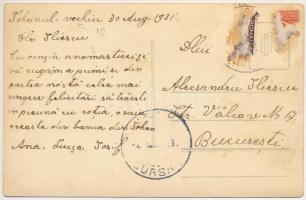 Tohanul vechiu 30 Aug. 1931.
Dle Iliescu
Cu ocazia onomasticii se
vă rugăm a primi și din
partea noastă cele mai
sincere felicitări să trăești
împreună cu soția,
aceasta din banca din Tohan
Ana, Iosif
Dlui
Alecsandru Iliescu
Str. Vâlcov No 17
București
BURSA